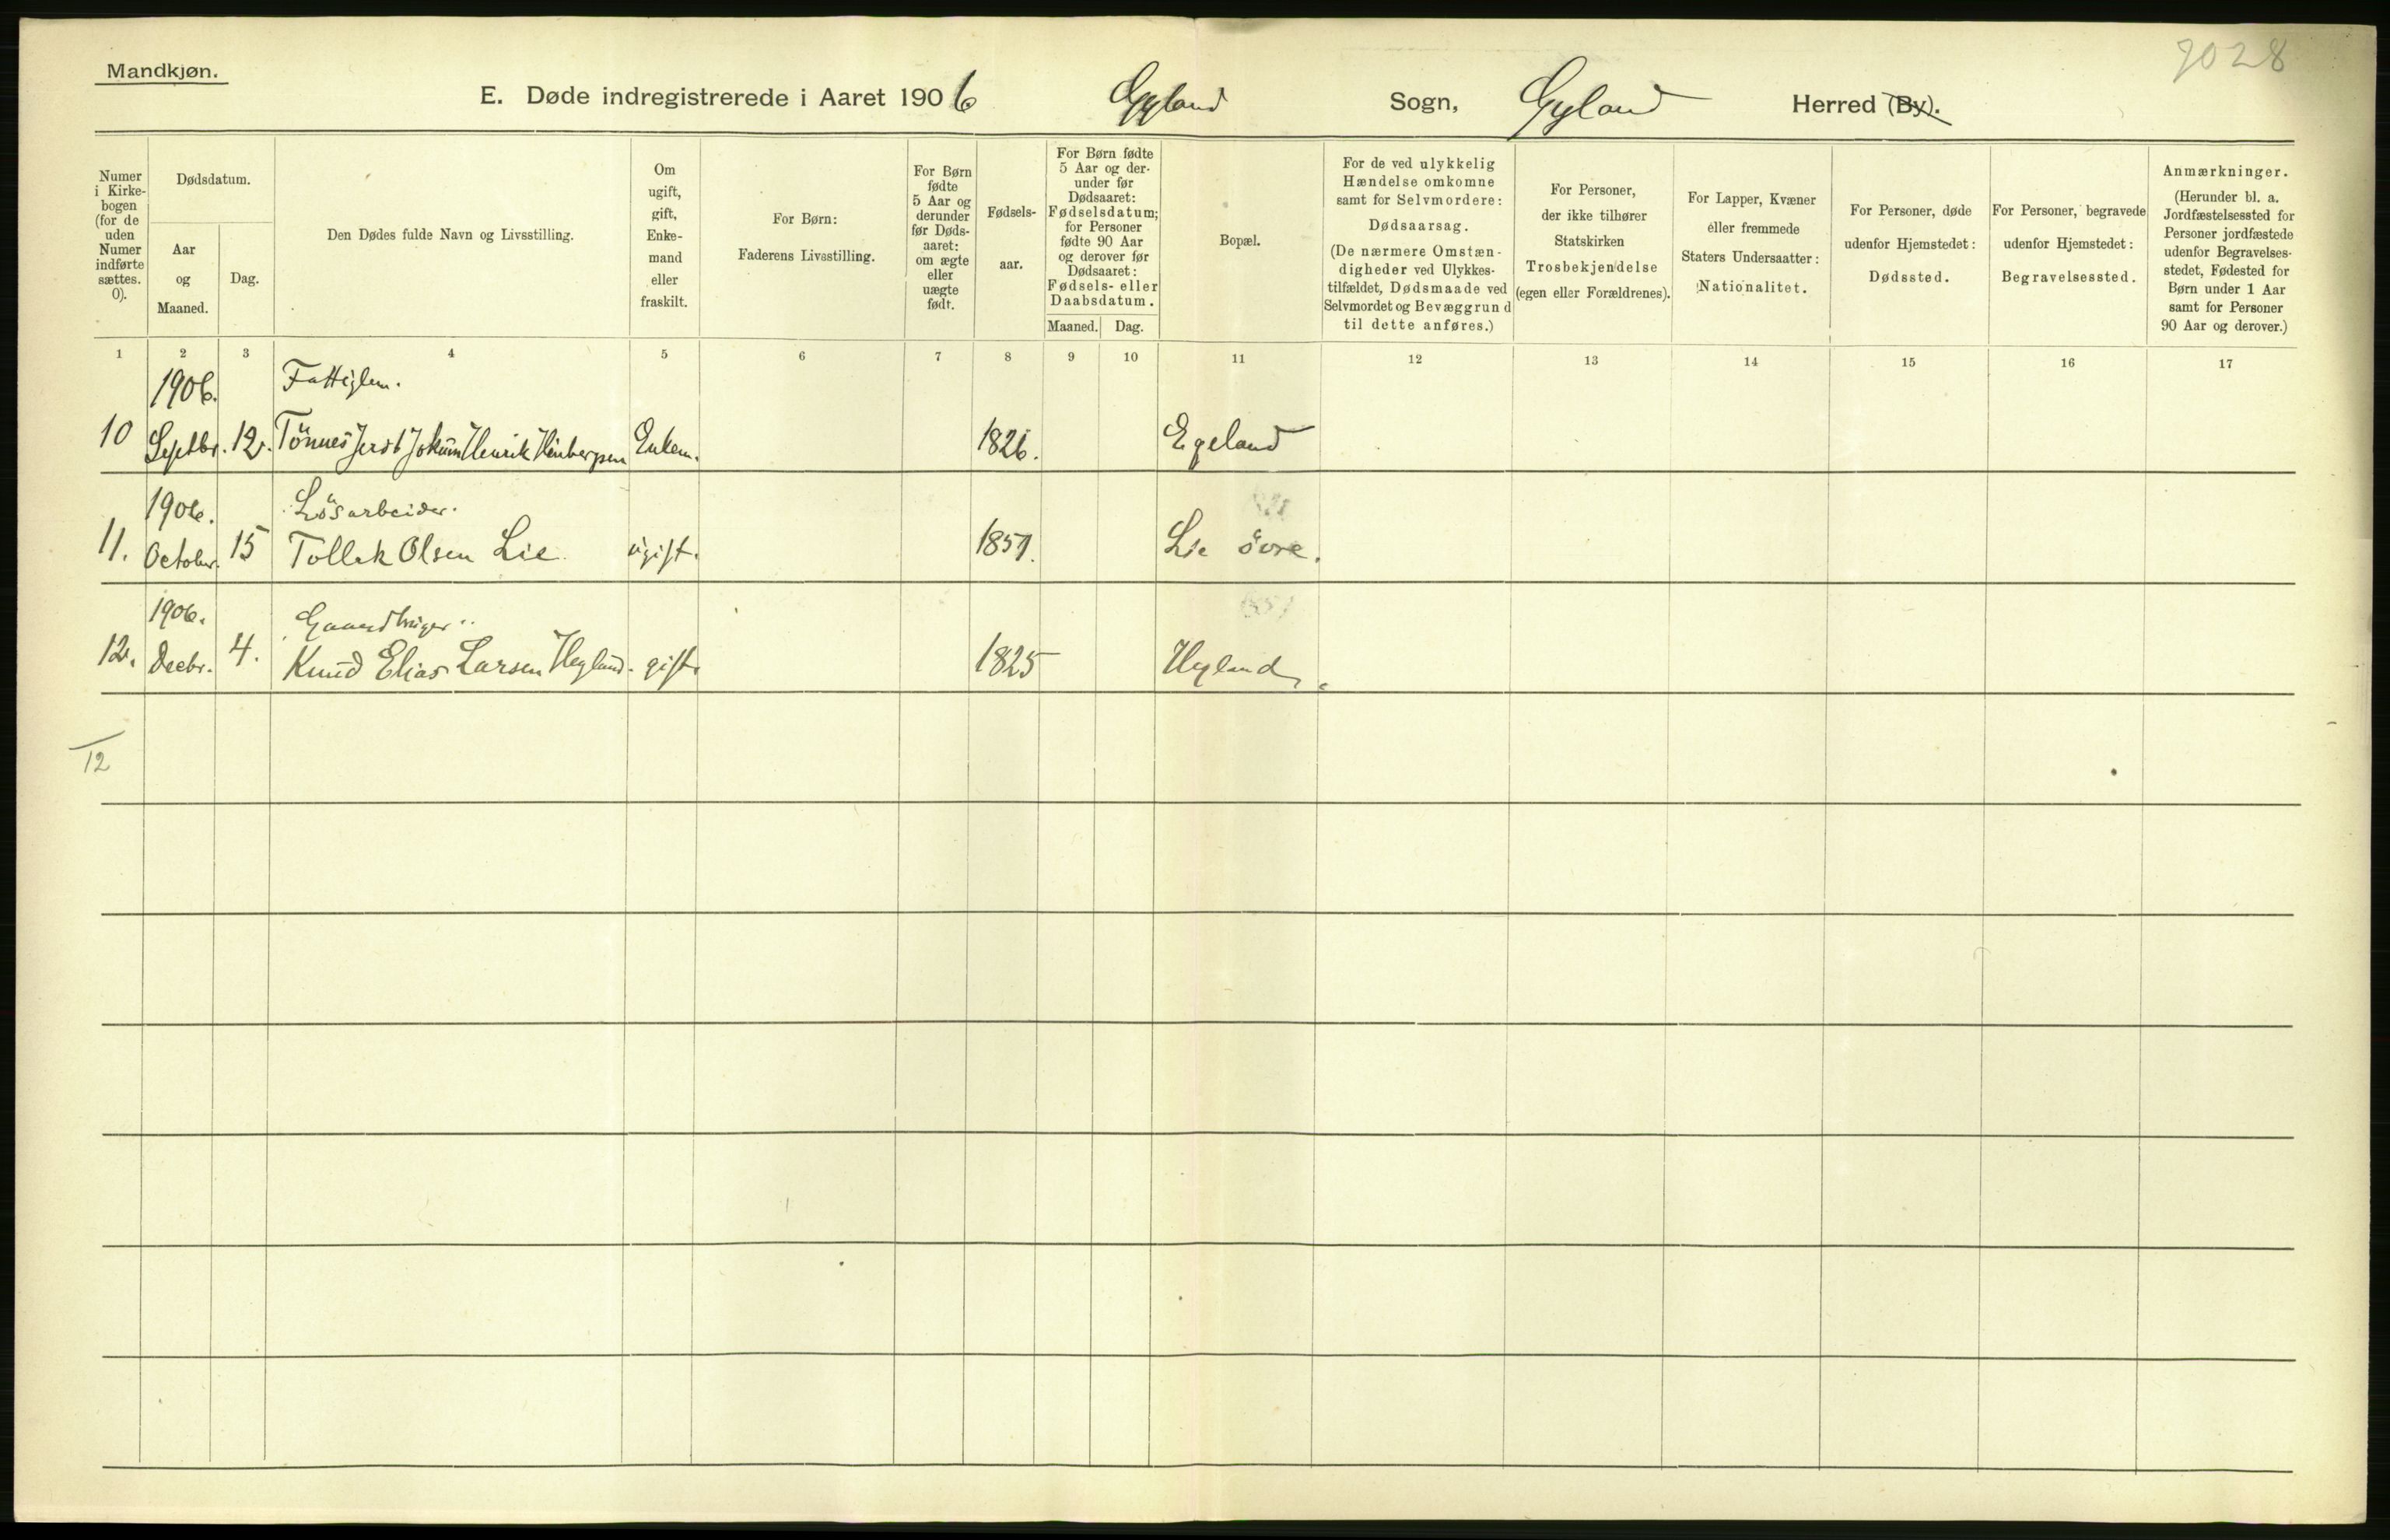 Mandkjøn.
7028
E. Døde indregistrerede i Aaret 1906 Gyland Sogn, Gyland Herred (By).
Numer i Kirkebogen (for de uden Numer indførte sættes. 0).
Dødsdatum.
Aar og Maaned.
Dag.
Den Dødes fulde Navn og Livsstilling.
Om ugift, gift, Enkemand eller fraskilt.
For Børn: Faderens Livsstilling.
For Børn fødte 5 Aar og derunder før Dødsaaret: om ægte eller uægte født.
Fødselsaar.
For Børn fødte 5 Aar og derunder før Dødsaaret: Fødselsdatum; for Personer fødte 90 Aar og derover før Dødsaaret: Fødsels- eller Daabsdatum.
Maaned. Dag.
Bopæl.
For de ved ulykkelig Hændelse omkomne samt for Selvmordere: Dødsaarsag. (De nærmere Omstændigheder ved Ulykkestilfældet, Dødsmaade ved Selvmordet og Bevæggrund til dette anføres.)
For Personer, der ikke tilhører Statskirken Trosbekjendelse (egen eller Forældrenes).
For Lapper, Kvæner eller fremmede Staters Undersaatter: Nationalitet.
For Personer, døde udenfor Hjemstedet: Dødssted.
For Personer, begravede udenfor Hjemstedet: Begravelsessted.
Anmærkninger. (Herunder bl. a. Jordfæstelsessted for Personer jordfæstede udenfor Begravelsesstedet, Fødested for Børn under 1 Aar samt for Personer 90 Aar og derover.)
1 2 3 4 5 6 7 8 9 10 11 12 13 14 15 16 17
1906. Fattiglem.
10 Septbr. 12. Tönnes Jokum Henrik Enkem. 1826. Egeland
1906. Lösarbeider.
11. October. 15 Tollek Olsen Lie ugift. 1857. Lie övre.
1906. Gaardbruger
12. Decbr. 4. Knud Elias Larsen Hegland. gift. 1825 Hegland.
12